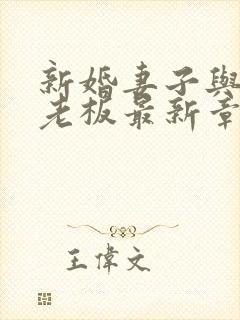 新婚妻子與
老板最新章
王偉文